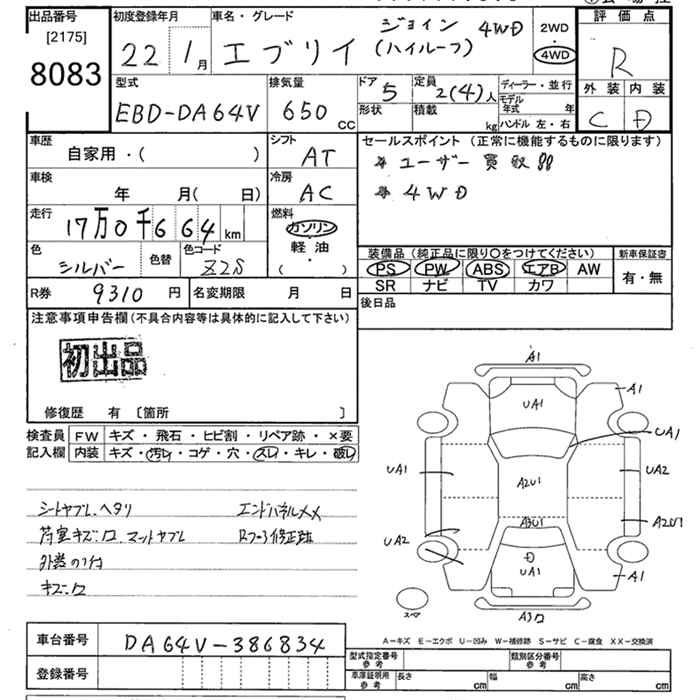 出品番号
[2175]
8083
初度登録年月
22 1月
車名・グレード
エブリイ ジョイン 4WD
(ハイルーフ)
2WD
・
4WD
評価点
R
外装 内装
C D
型式
EBD-DA64V
排気量
650 cc
ドア 5
形状
定員 2(4)人
積載 kg
ディーラー・並行
モデル年式 年
ハンドル 左・右
車歴
自家用・( )
シフト
AT
セールスポイント (正常に機能するものに限ります)
* ユーザー買取品
* 4WD
車検
年 月( 日)
冷房
AC
走行
17万0千664km
燃料
ガソリン
軽油
( ・ )
色
シルバー
色替
色コード
Z2S
装備品 (純正品に限り○をつけてください)
PS PW ABS エアB AW
SR ナビ TV カワ
新車保証書
有・無
R券 9310 円
名変期限 月 日
後日品
注意事項申告欄(不具合内容等は具体的に記入して下さい)
初出品
修復歴 有 〔箇所 〕
検査員
記入欄
FW キズ・飛石・ヒビ割・リペア跡・×要
内装 キズ・汚レ・コゲ・穴・スレ・キレ・破レ
シートヤブレ、ヘタリ
エンドパネルメメ
荷室キズ・ワ マットヤブレ
Rフロア修正跡
外装のリ付
キズ・ワ
A1
UA1
A1
UA1
UA1
A2U1
UA2
A2U1
A3U1
UA2
D
UA1
A1
スペア
車台番号 DA64V-386834
登録番号
A-キズ E-エクボ U-凹み W-補修跡 S-サビ C-腐食 XX-交換済
型式指定番号
参考
類別区分番号
参考
車庫証明用
参考
長さ cm 幅 cm 高さ cm